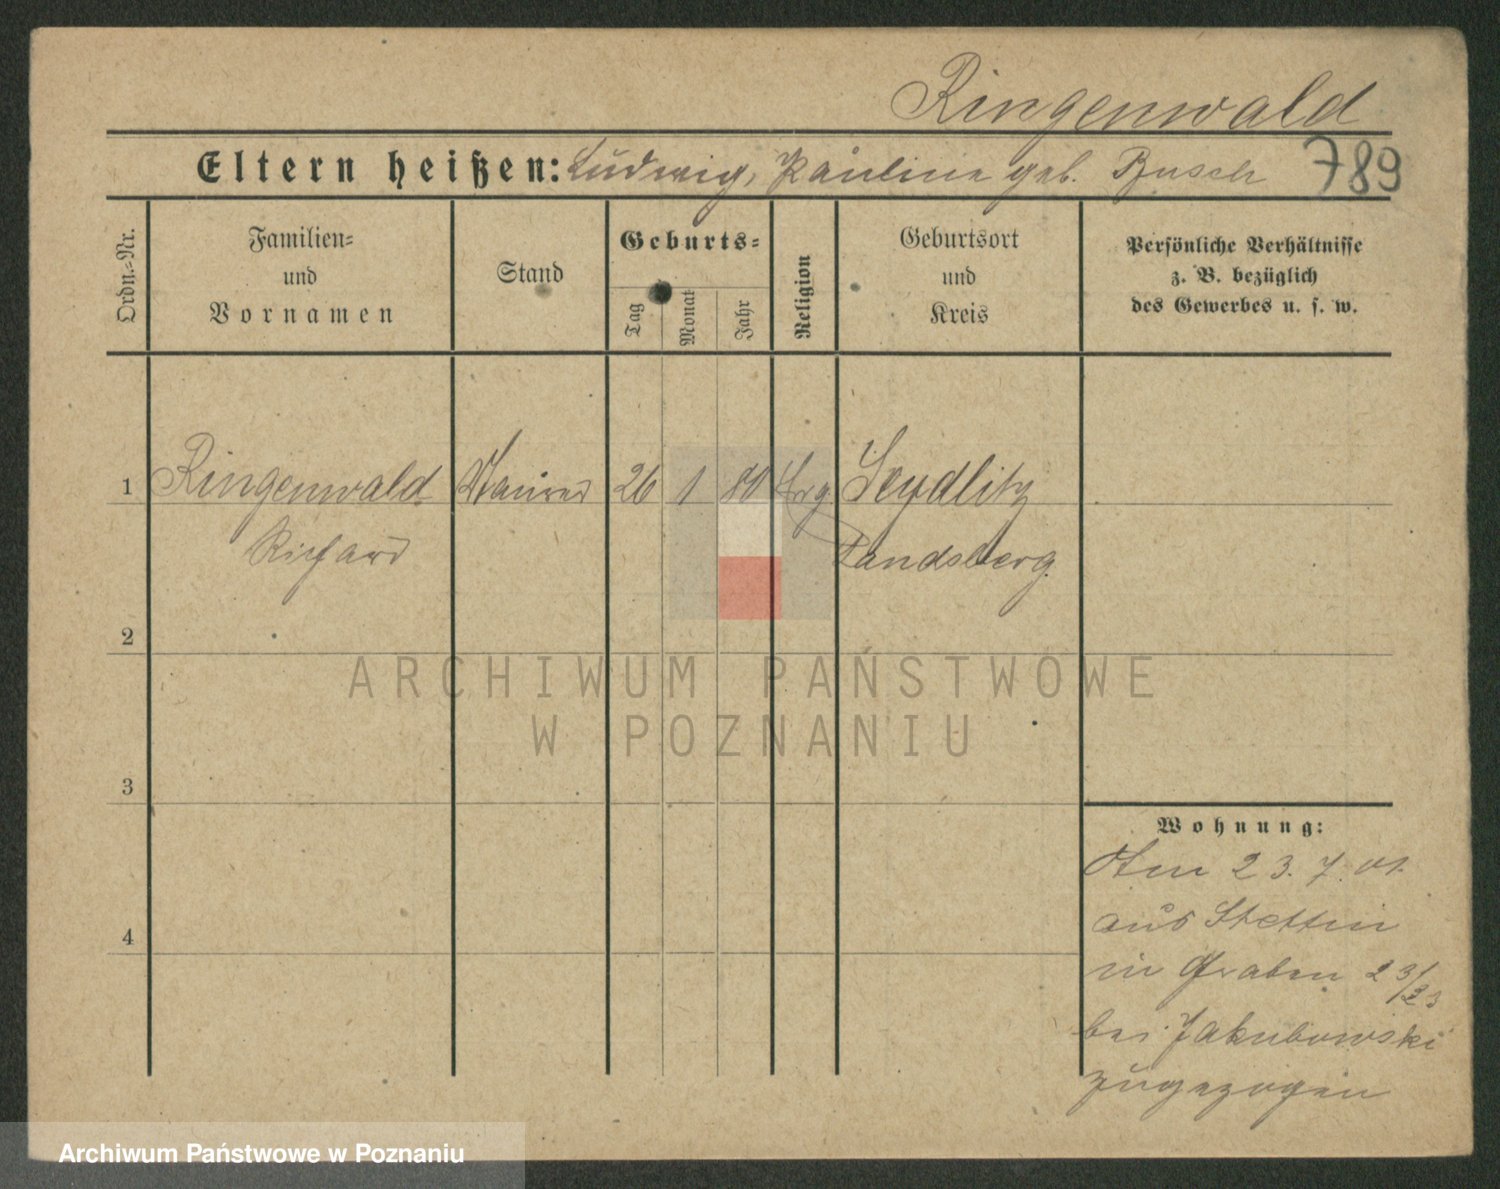 Ringenwald
Eltern heißen: Ludwig, Pauline geb. Busch 789
Ordn.-Nr.
Familien-
und
Vornamen
Stand
Geburts-
Tag
Monat
Jahr
Religion
Geburtsort
und
Kreis
Persönliche Verhältnisse
z. B. bezüglich
des Gewerbes u. s. w.
1 Ringenwald Maurer 26 1 80 Seydlitz
Richard Landsberg
2
ARCHIWUM PAŃSTWOWE
W POZNANIU
3
Wohnung:
Am 23. 7. 01.
aus Stettin
4
in Graben 23/33
bei Jakubowski
zugezogen
Archiwum Państwowe w Poznaniu